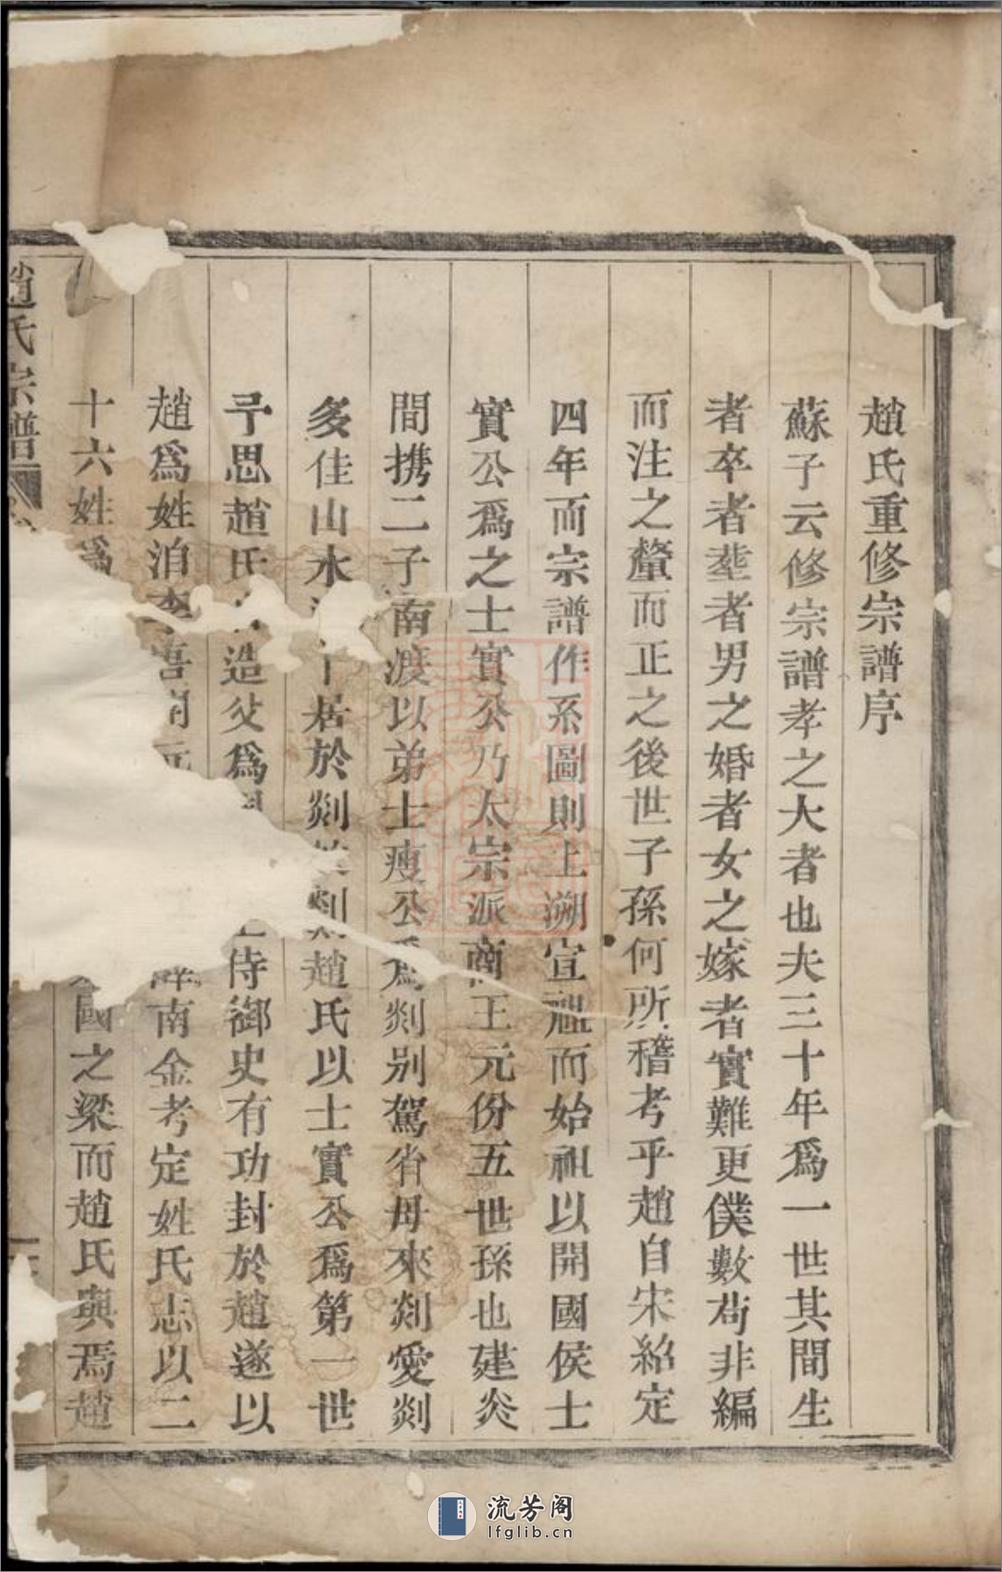 趙氏重修宗譜序
蘇子云修宗譜孝之大者也夫三十年爲一世其間生
者卒者塟者男之婚者女之嫁者實難更僕數茍非編
而注之釐而正之後世子孫何所稽考乎趙自宋紹定
四年而宗譜作系圖則上溯宣祖而始祖以開國侯士
實公爲之士實公乃太宗派商王元份五世孫也建炎
間携二子南渡以弟士瘦公爲剡别駕省母來剡愛剡
多佳山水居於剡剡趙氏以士實公爲第一世
予思趙氏造父爲侍御史有功封於趙遂以
趙爲姓洎南金考定姓氏志以二
十六姓爲國之梁而趙氏與焉趙
趙氏宗譜
流芳阁
lfglib.cn